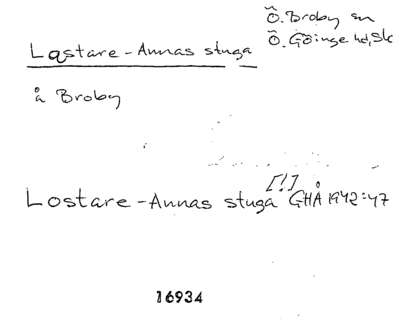 Ö. Broby sn
Lastare-Annas stuga Ö. Göinge hd, Sk
å Broby
[!]
Lostare-Annas stuga GHÅ 1942:47
16934